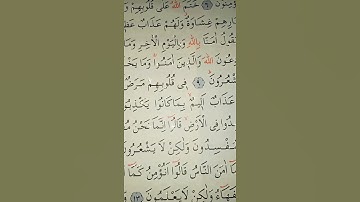 ؤْمِنُونَ ٦ خَتَمَ اللّٰهُ عَلٰى قُلُوبِهِمْ وَ
ارِهِمْ غِشَاوَةٌ وَلَهُمْ عَذَابٌ عَظ
قُولُ اٰمَنَّا بِاللّٰهِ وَبِالْيَوْمِ الْاٰخِرِ وَمَا
دِعُونَ اللّٰهَ وَالَّذ۪ينَ اٰمَنُواۚ وَمَا يَخْ
شْعُرُونَۜ ٩ ف۪ي قُلُوبِهِمْ مَرَضٌۙ
عَذَابٌ اَل۪يمٌۙ بِمَا كَانُوا يَكْذِبُ
دُوا فِي الْاَرْضِۙ قَالُٓوا اِنَّمَا نَحْنُ مُ
ـفْسِدُونَ وَلٰكِنْ لَا يَشْعُرُ
مَٓا اٰمَنَ النَّاسُ قَالُٓوا اَنُؤْمِنُ كَمَٓا ا
فَهَٓاءُ وَلٰكِنْ لَا يَعْلَمُونَ ١٣